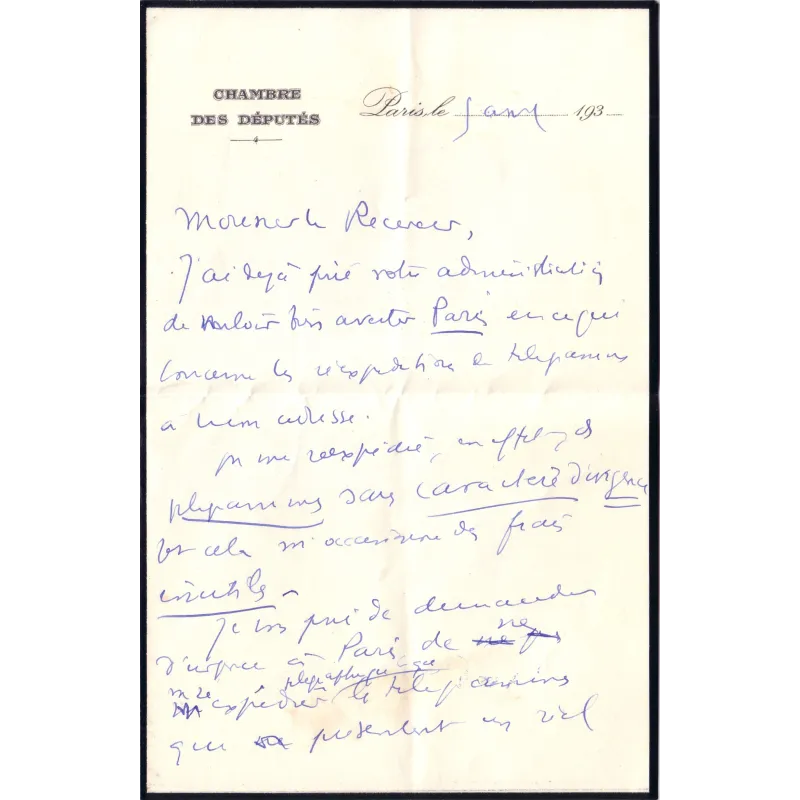 CHAMBRE
DES DÉPUTÉS
Paris, le 5 avril 193
Monsieur le Receveur,
J'ai dejà prié votre administration
de vouloir bien avertir Paris en ce qui
concerne les réexpeditions de telegrammes
à mon adresse.
On me reexpédie, en effet, des
telegrammes sans caractère d'urgence
et cela m'occasionne des frais
inutiles -
Je vous prie de demander
d'urgence à Paris de ne
me reexpédier telegraphiquement que
les telegrammes
que presentent un réel